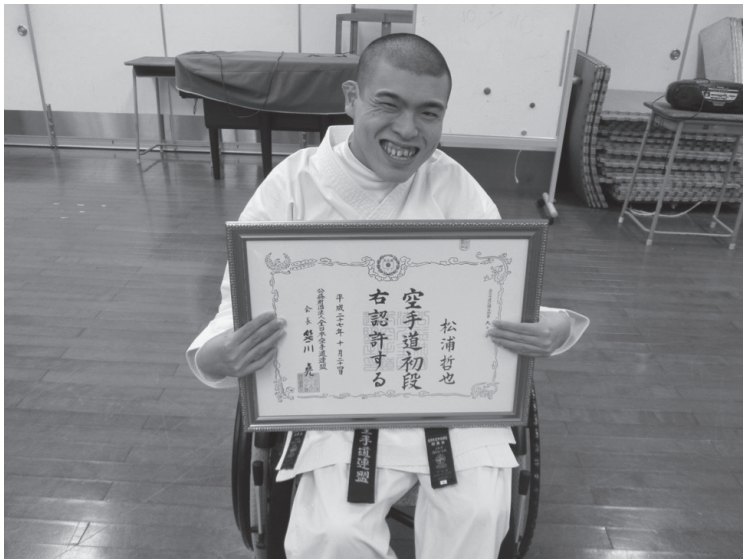 松浦哲也
空手道初段
右認許する
平成二十七年十月二十四日
公益財団法人全日本空手道連盟
会長 笹川 堯
空手道連盟